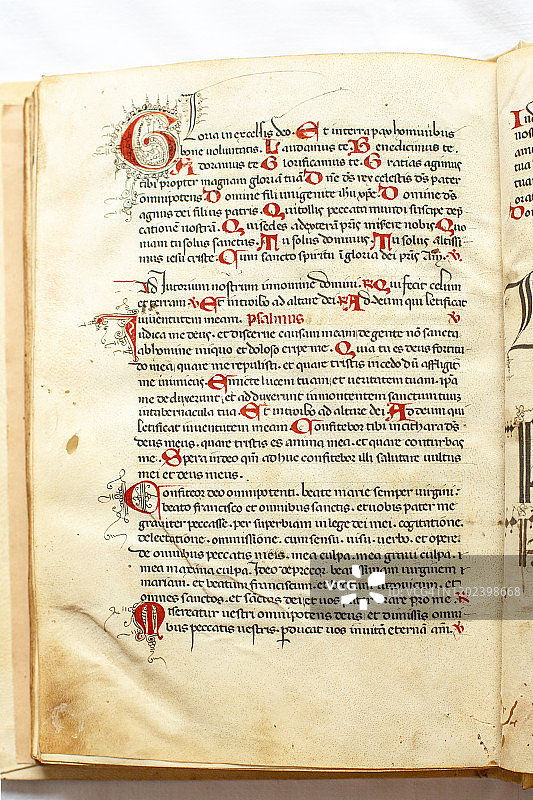 Gloria in excelsis deo. Et in terra pax hominibus
bone voluntatis. Laudamus te. Benedicimus te.
Adoramus te. Glorificamus te. Gratias agimus
tibi propter magnam gloriā tuā. Dn̄e ds̄ rex celestis ds̄ pater
omnipotens. Domine fili unigenite ihū xp̄e. Domine ds̄
agnus dei filius patris. Qui tollis peccata mundi suscipe dep̄
cationē nostrā. Qui sedes ad dexterā pr̄is miserē nobis. Quo
niam tu solus sanctus. Tu solus dominus. Tu solus altissi
mus iesu criste. Cum sancto spiritu in gloria dei pr̄is am̄. v.
Adiutorium nostrum in nomine domini. R. Qui fecit celum
et terram. v. Et introibo ad altare dei. R. Ad deum qui letificat
iuventutem meam. psalmus v
Iudica me deus. et discerne causam meam de gente nō sancta
ab homine iniquo et doloso eripe me. Quia tu es deus fortitu
do mea. quare me repulisti. et quare tristis incedo dū affligit
me inimicus. Emicte lucem tuam. et veritatem tuam. ipa
me deduxerunt. et adduxerunt in montem sanctum tuum
in tabernacula tua. Et introibo ad altare dei. Ad deum qui
letificat iuventutem meam. Confitebor tibi in cithara ds̄
deus meus. quare tristis es anima mea. et quare conturbas
me. Spera in deo qm̄ adhuc confitebor illi salutare vultus
mei et deus meus.
Confiteor deo omnipotenti. beate marie semper virgini.
beato francisco et omnibus sanctis. et vobis pater me
graviter peccasse. per superbiam in lege dei mei. cogitatione.
delectatione. omissione. consensu. visu. verbo. et opere.
de omnibus peccatis meis. mea culpa. mea gravi culpa. et
mea maxima culpa. Ideo deprecor beatissimam virginem
mariam. et beatum franciscum. et
omnes sanctos. et vos orare pro me. R
Misereatur vestri omnipotens deus. et dimissis omni
bus peccatis vestris. p̄ducat vos in vitā eternā. am̄. v
VCG
VCG41N1402398668